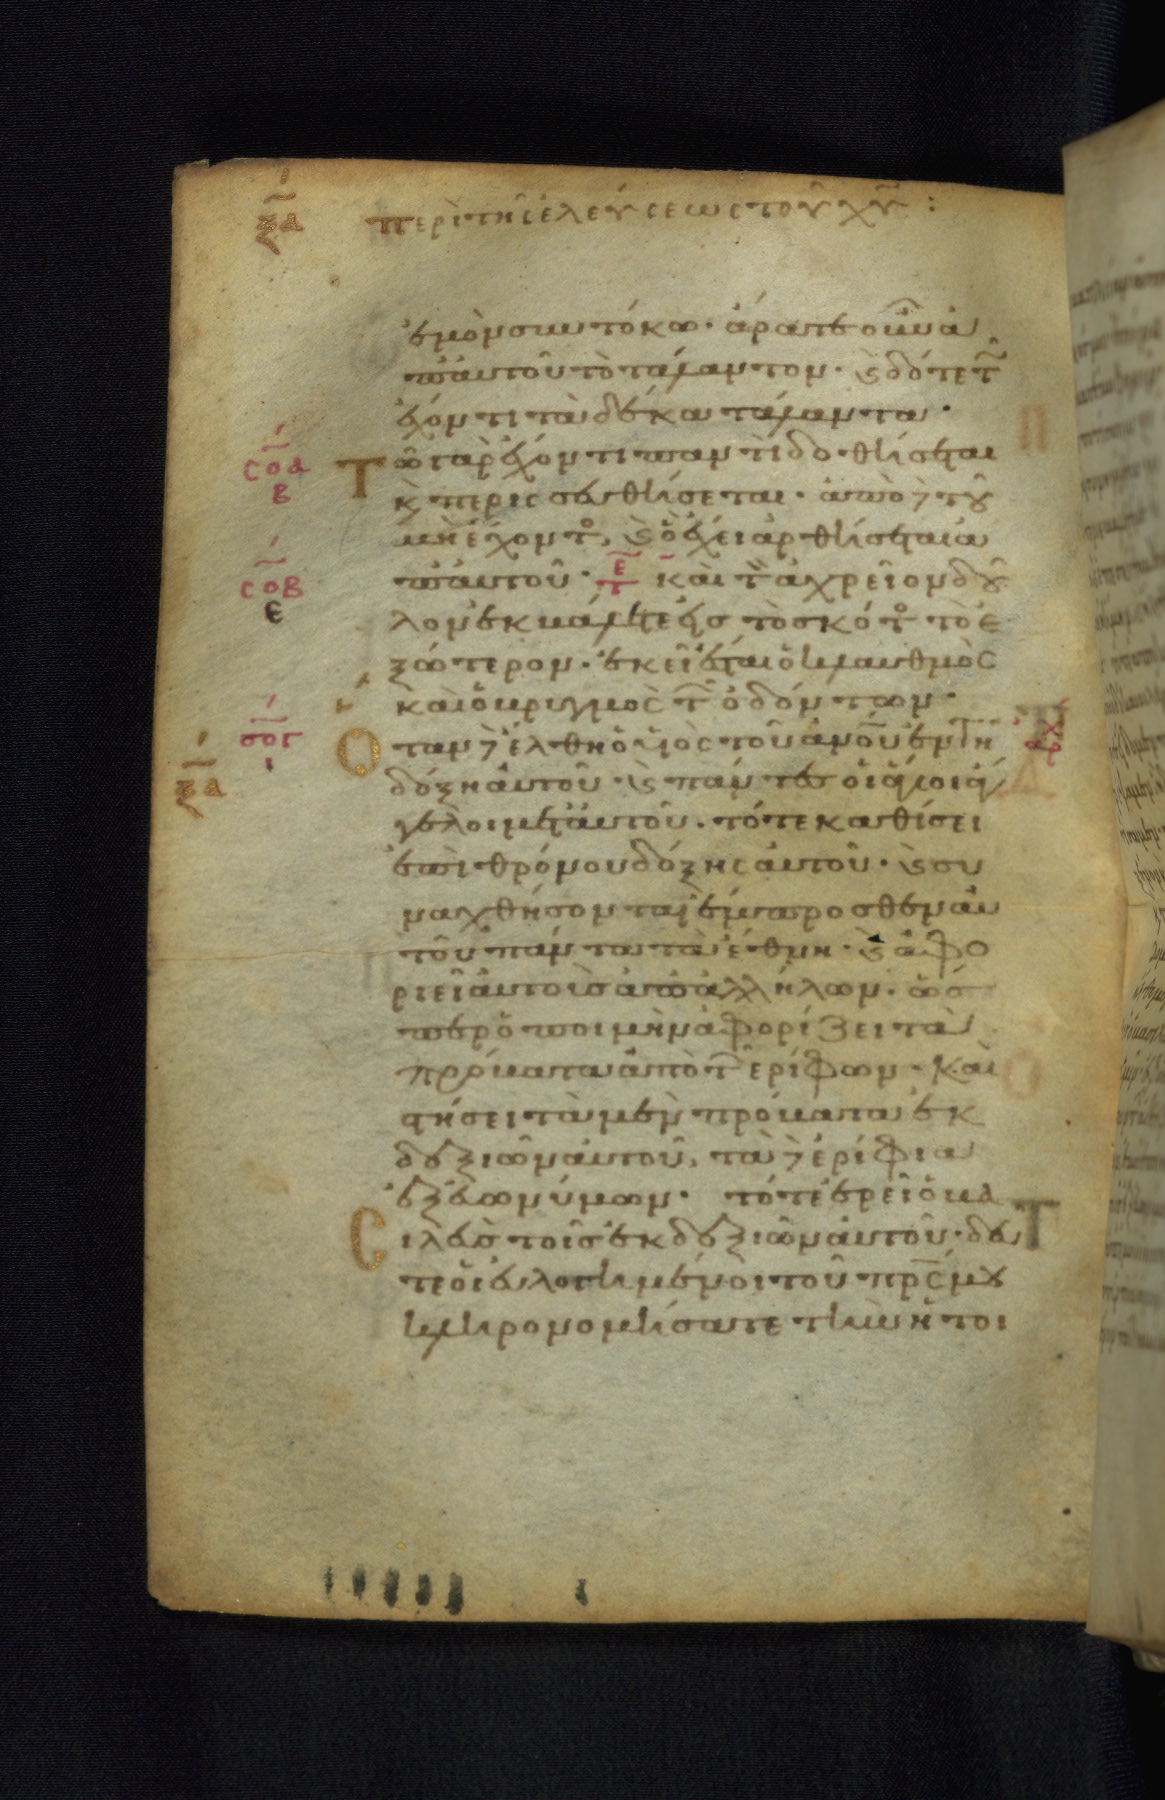 ξ̃α
περὶ τῆς ἐλεύσεως τοῦ χυ̅ :
ἐμὸν σὺν τόκω· ἄρατε οὖν ἀ
π' αὐτοῦ τὸ τάλαντον· ϗ δότε τῶ
ἔχοντι τὰ δέκα τάλαντα·
σοα
β
Τῶ γὰρ ἔχοντι παντὶ δοθήσεται
κ περισσευθήσεται· ἀπὸ δὲ τοῦ
μὴ ἔχοντος, ϗ ὃ ἔχει ἀρθήσεται ἀ
σοβ
ε
π' αὐτοῦ· καὶ τὸν ἀχρεῖον δοῦ
λον ἐκβάλλετε εἰς τὸ σκότος τὸ ἐ
ξώτερον· ἐκεῖ ἔσται ὁ κλαυθμὸς
καὶ ὁ βρυγμὸς τῶν ὀδόντων·
σογ
ι
Ὅταν δὲ ἔλθη ὁ υἱὸς τοῦ ανου̅ ἐν τῆ
ξ̃α
δόξη αὐτοῦ· ϗ πάντες οἱ ἅγιοι ἄγ
γελοι μετ' αὐτοῦ· τότε καθίσει
ἐπὶ θρόνου δόξης αὐτοῦ· ϗ συ
ναχθήσονται ἔμπροσθεν αὐ
τοῦ πάντα τὰ ἔθνη· ϗ ἀφο
ριεῖ αὐτοὺς ἀπ' ἀλλήλων· ὥσ
περ ὁ ποιμὴν ἀφορίζει τὰ
πρόβατα ἀπὸ τῶν ἐρίφων· καὶ
στήσει τὰ μὲν πρόβατα ἐκ
δεξιῶν αὐτοῦ, τὰ δὲ ἐρίφια
ἐξ εὐωνύμων· τότε ἐρεῖ ὁ βα
Σιλεὺς τοῖς ἐκ δεξιῶν αὐτοῦ· δεῦ
τε οἱ εὐλογημένοι τοῦ πρς̅ μου
κληρονομήσατε τὴν ἡτοι